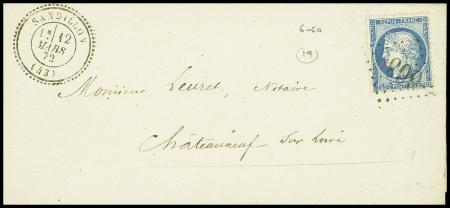 SANDILLON
12
MARS
72
(43)
6-60
19
REPUB. FRANC.
Monsieur Leuret, Notaire
Châteauneuf Sur Loire